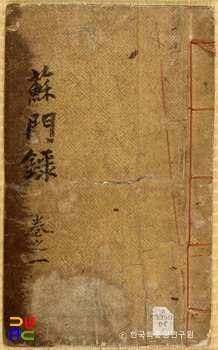 蘇門錄
卷之一
© 한국학중앙연구원